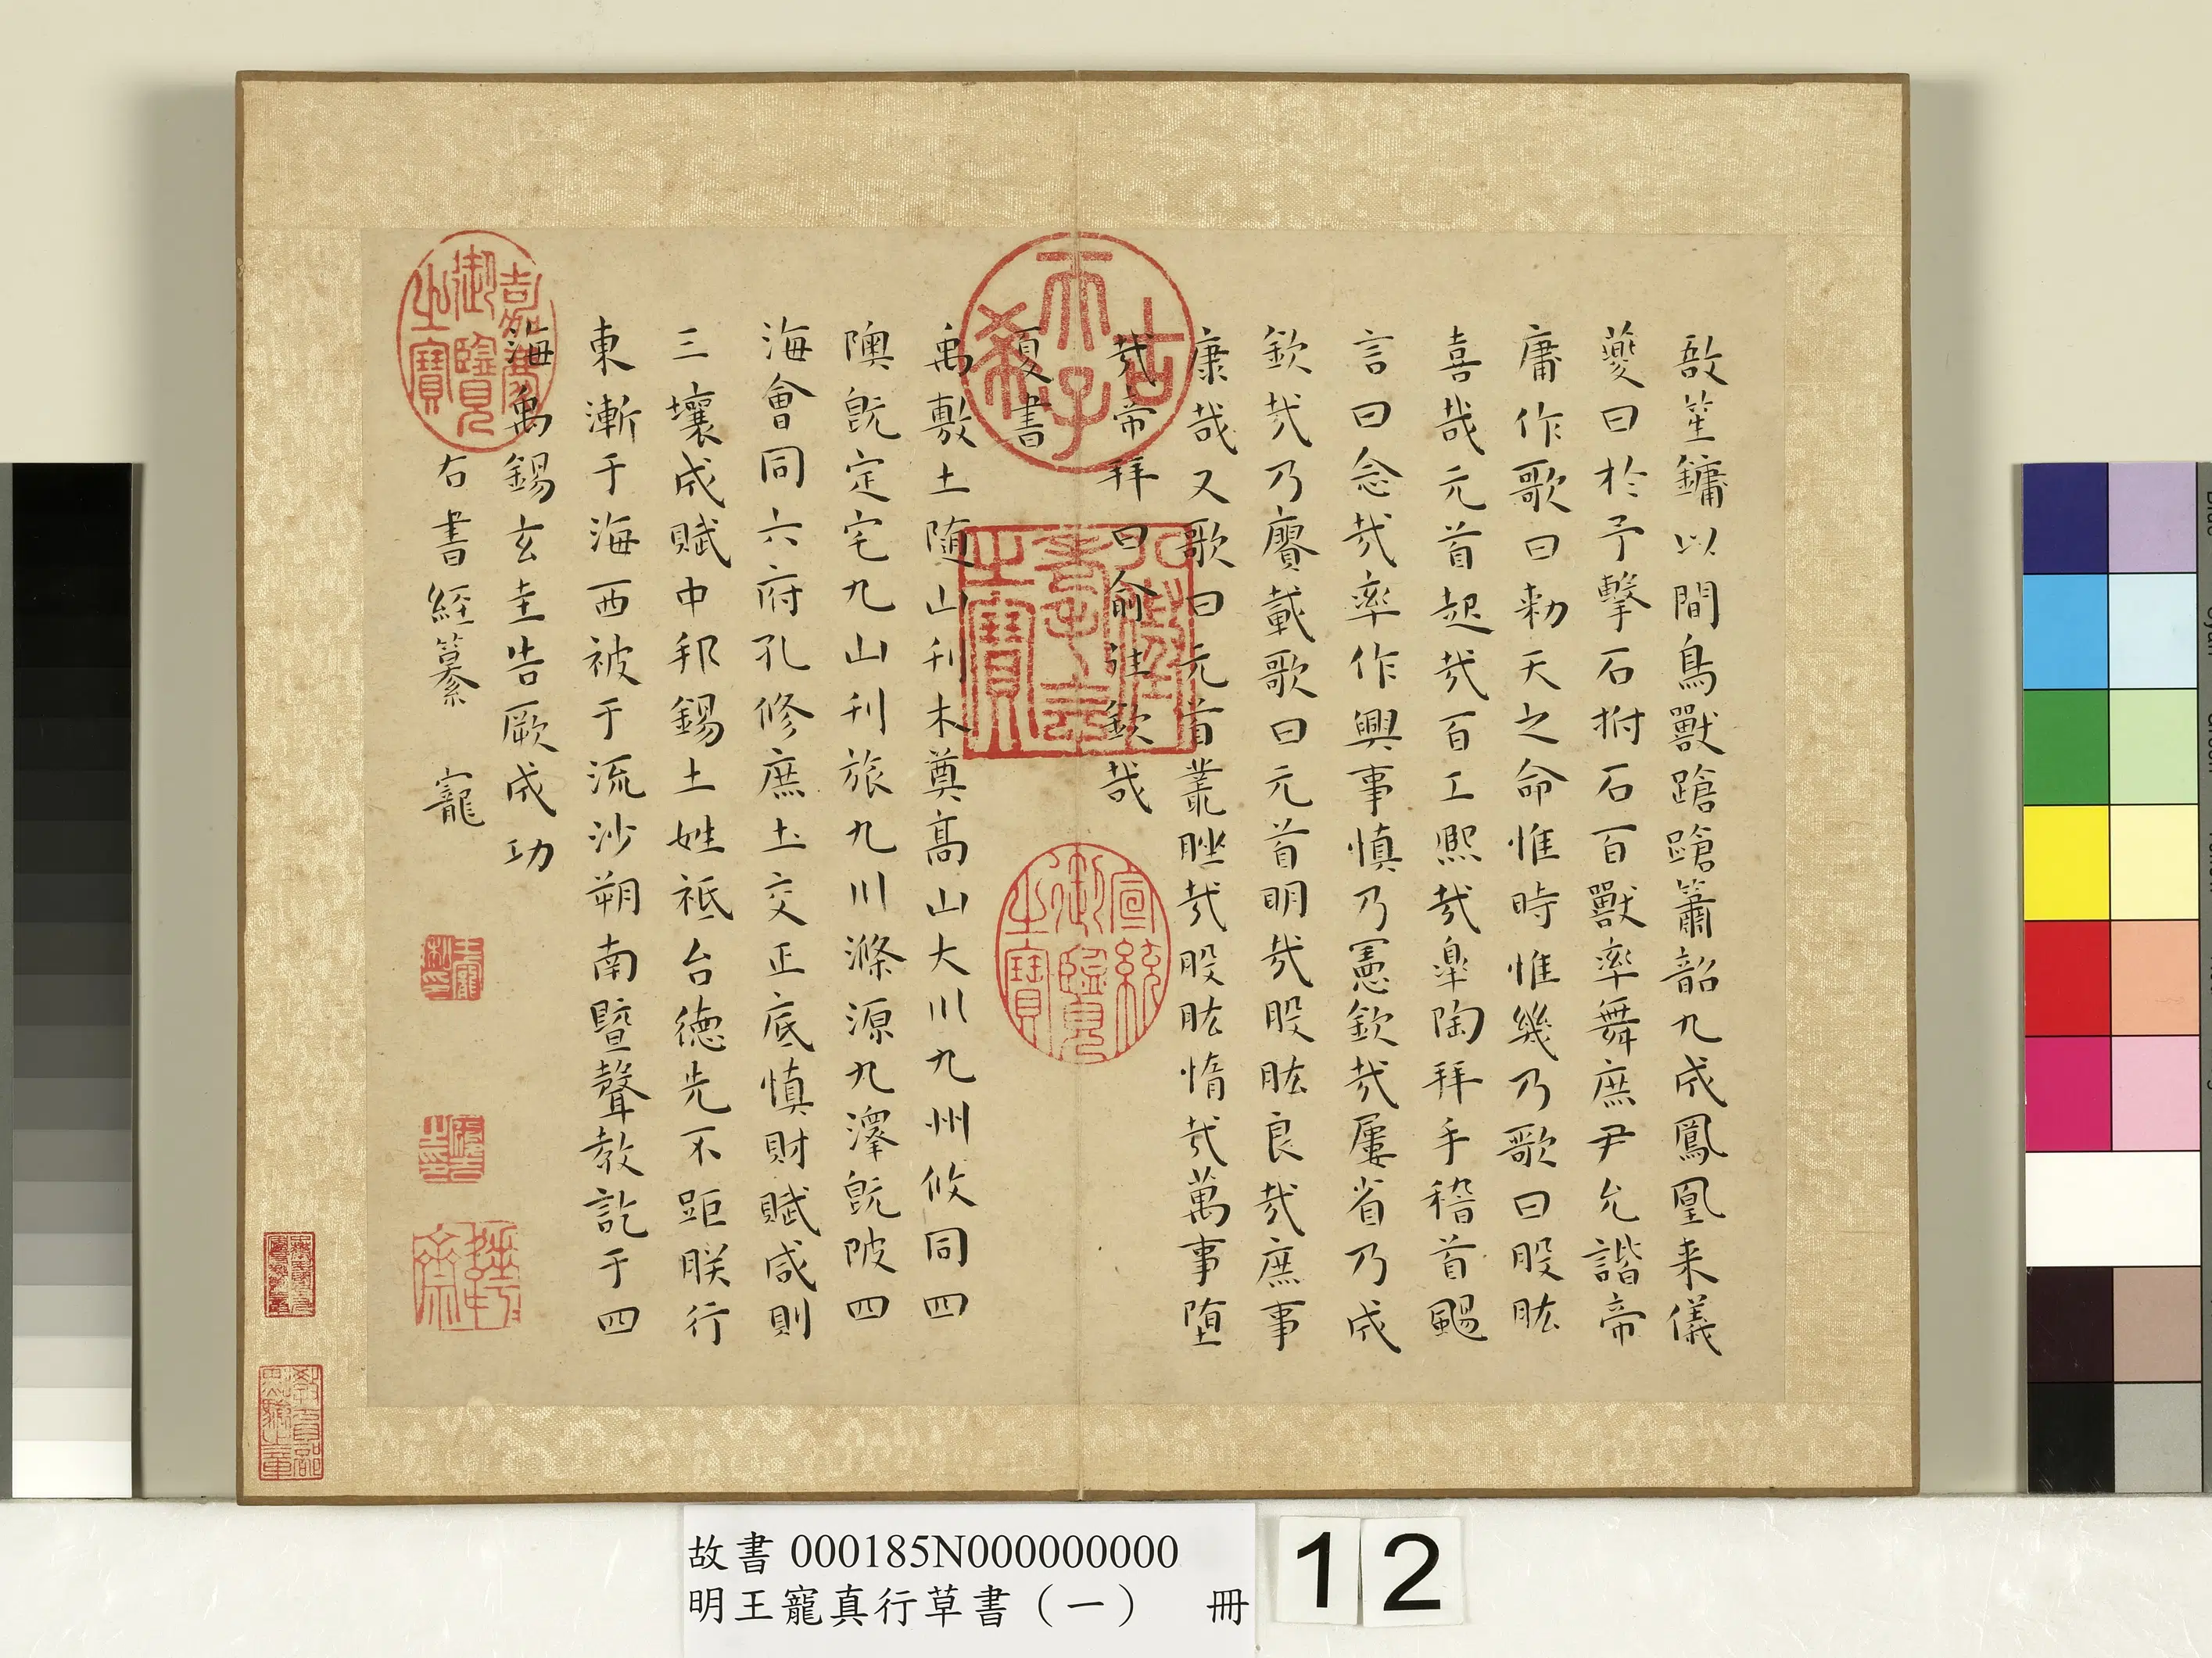 敔笙鏞以間鳥獸蹌蹌簫韶九成鳳凰来儀
夔曰於予擊石拊石百獸率舞庶尹允諧帝
庸作歌曰勅天之命惟時惟幾乃歌曰股肱
喜哉元首起哉百工熙哉皋陶拜手稽首颺
言曰念哉率作興事慎乃憲欽哉屢省乃成
欽哉乃賡載歌曰元首明哉股肱良哉庶事
康哉又歌曰元首叢脞哉股肱惰哉萬事墮
哉帝拜曰俞往欽哉
夏書
禹敷土随山刊木奠高山大川九州攸同四
隩既定宅九山刊旅九川滌源九澤既陂四
海會同六府孔修庶土交正底慎財賦咸則
三壤成賦中邦錫土姓祗台德先不距朕行
東漸于海西被于流沙朔南暨聲教訖于四
海禹錫玄圭告厥成功
右書經纂 寵
古希天子
八徵耄念之寶
嘉慶御覽之寶
宣統御覽之寶
王寵私印
故書 000185N000000000
明王寵真行草書（一） 冊
12